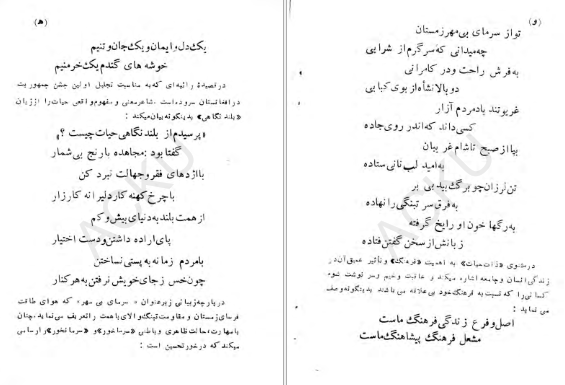 (ه)
یکدل و ایمان و یک جان و تنیم
خوشه های گندم یک خرمنیم
در قصیدهٔ رائیه ای که به مناسبت تجلیل اولین جشن جمهوریت
در افغانستان سروده است شاعر معنی و مفهوم واقعی حیات را از زبان
«بلند نگاهی» بدینگونه بیان میکند :
« پرسیدم از بلند نگاهی حیات چیست ؟»
گفتا بود : مجاهده با رنج بی شمار
با اژدهای فقر و جهالت نبرد کن
با چرخ کهنه کار دلیرانه کارزار
از همت بلند به دنیای بیش و کم
پای اراده داشتن و دست اختیار
با مردم زمانه به پستی نساختن
چون خس ز جای خویش نرفتن به هر کنار
در پارچه زیبائی زیر عنوان « سرمای بی مهر» که هوای طاقت
فرسای زمستان و مقاومت تینگ والای با همت را تعریف می نماید، چنان
با مهارت حالت ظاهری و باطنی «سرما خور» و «سرما نخور» را رسامی
میکند که در خور تحسین است :
(و)
تو از سرمای بی مهر زمستان
چه میدانی که سرگرم از شرابی
به فرش راحت و در کامرانی
دو بالا نشأه از بوی کبابی
غریو تند باد مردم آزار
کسی داند که اندر روی جاده
بپا از صبح تا شام غریبان
به امید لب نانی ستاده
تن لرزان چو برگ بید بی بر
به فرق سر تبنگی را نهاده
به رگها خون او را یخ گرفته
زبانش از سخن گفتن فتاده
در مثنوی «ذات حیات» به اهمیت «فرهنگ» و تأثیر عمیق آن در
زندگی انسان و جامعه اشاره میکند و عاقبت وخیم و سرنوشت شوم
کسانی را که نسبت به فرهنگ خود بی علاقه می باشند بدینگونه وصف
می نماید :
اصل و فرع زندگی فرهنگ ماست
مشعل فرهنگ پیشاهنگ ماست
ACKU
ACKU